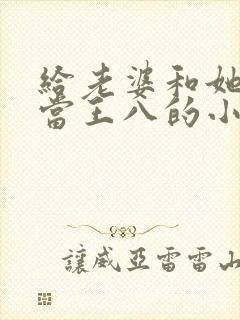 給老婆和她
當王八的小
讓威亞雷雷山